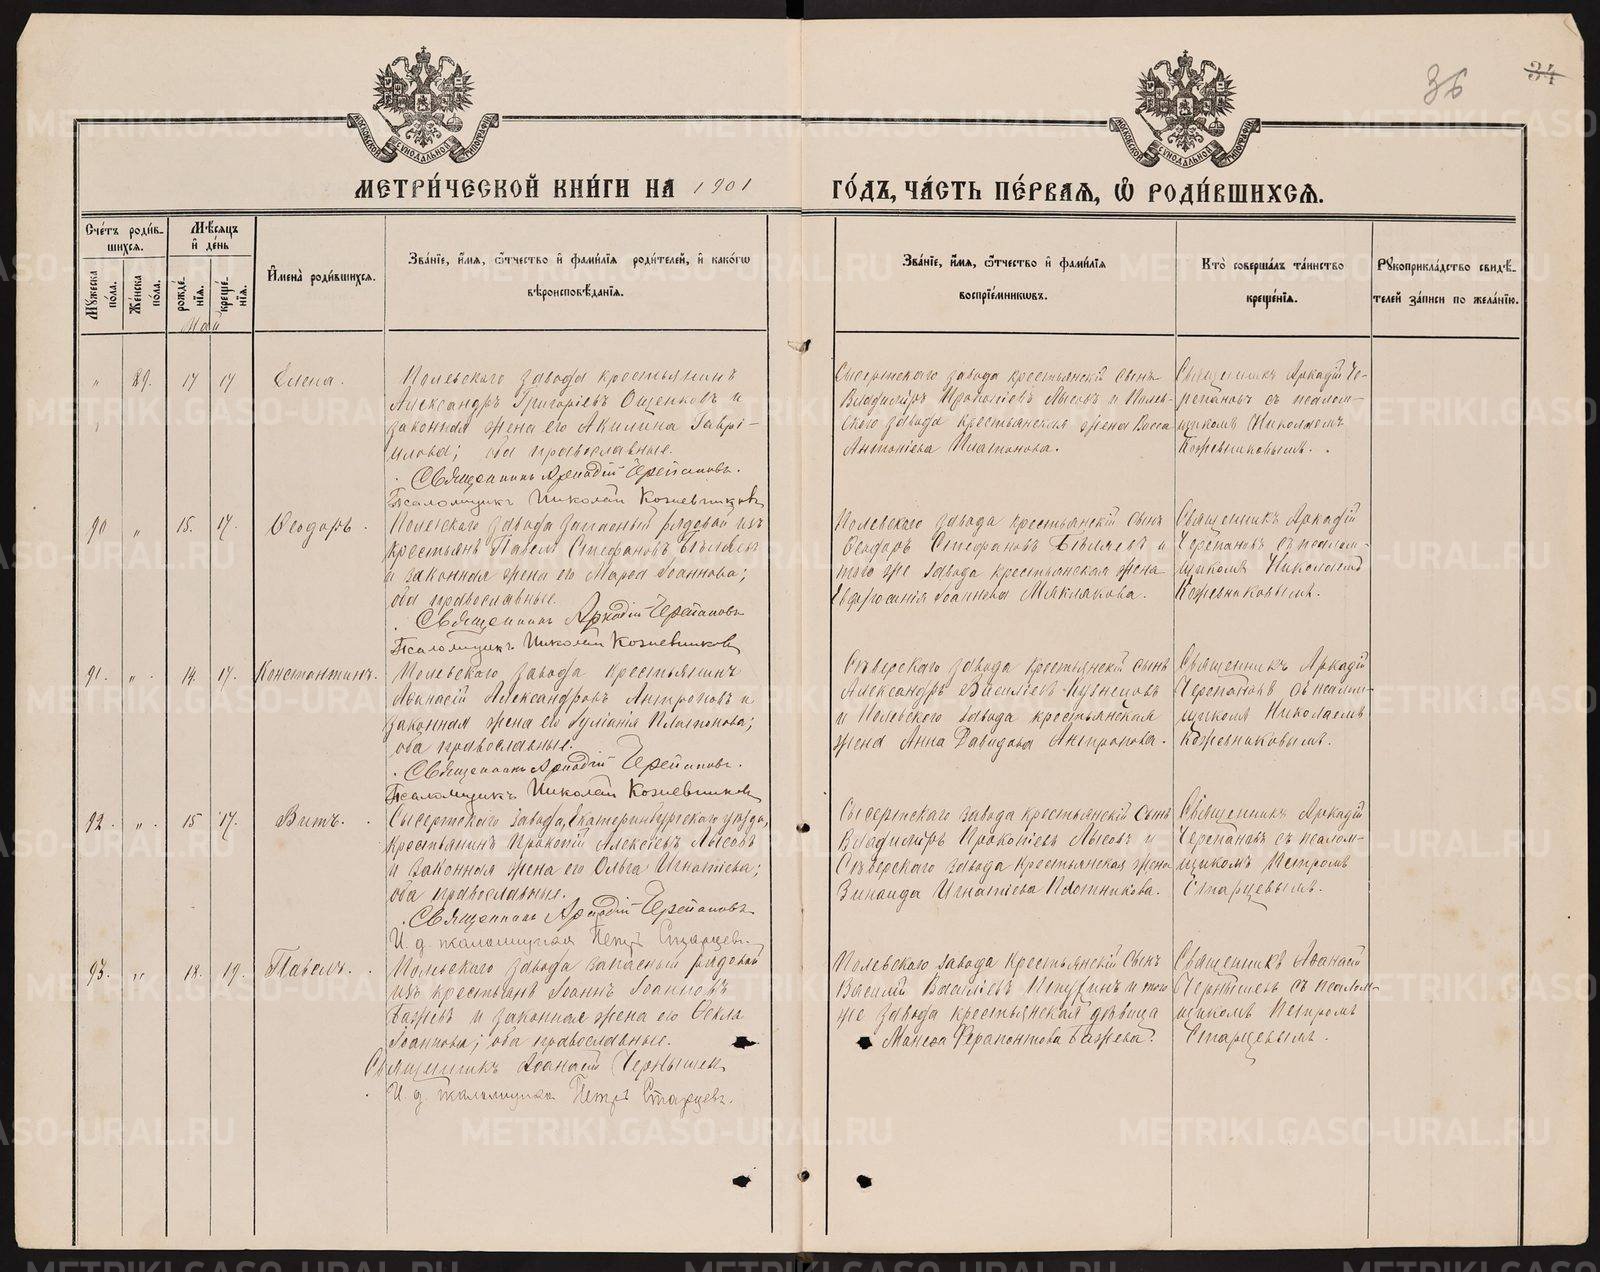 36
34
МОСКОВСКОЙ СѴНОДАЛЬНОЙ ТИПОГРАФІИ
МОСКОВСКОЙ СѴНОДАЛЬНОЙ ТИПОГРАФІИ
МЕТРИ́ЧЕСКОЙ КНИ́ГИ НА 1901 ГО́ДЪ, ЧА́СТЬ ПЕ́РВАѦ, Ѽ РОДИ́ВШИХСѦ.
Сче́тъ роди́в-
шихсѧ.
Мꙋ́жеска по́ла.
Же́нска по́ла.
Мѣ́сѧцъ
и҆ де́нь
рожде́-
нїѧ.
креще́-
нїѧ.
Май
И҆мена̀ роди́вшихсѧ.
Зва́нїе, и҆́мѧ, ѻ҆́тчество и҆ фами́лїѧ роди́телей, и҆ како́гѡ
вѣроисповѣ́данїѧ.
Зва́нїе, и҆́мѧ, ѻ҆́тчество и҆ фами́лїѧ
воспрїе́мникѡвъ.
Кто̀ соверша́лъ та́инство
креще́нїѧ.
Рꙋкоприкла́дство свидѣ́-
телей за́писи по жела́нїю.
" 89. 17 17 Елена.
Полевскаго завода крестьянинъ
Александръ Григоріевъ Ощепковъ и
законная жена его Акилина Гаврі-
илова; оба православные.
Священникъ Аркадій Черепановъ.
Псаломщикъ Николай Кожевниковъ
Сысертскаго завода крестьянскій сынъ
Владимiръ Прокопіевъ Лысовъ и Полев-
скаго завода крестьянская жена Васса
Антоніева Платонова.
Священникъ Аркадій Че-
репановъ съ псалом-
щикомъ Николаемъ
Кожевниковымъ.
90 " 15. 17. Ѳеодоръ.
Полевскаго завода запасный рядовой изъ
крестьянъ Павелъ Стефановъ Бѣляевъ
и законная жена его Марѳа Іоаннова;
оба православные.
Священникъ Аркадій Черепановъ
Псаломщикъ Николай Кожевниковъ
Полевскаго завода крестьянскій сынъ
Ѳеодоръ Стефановъ Бѣляевъ и
того же завода крестьянская жена
Евфросинія Іоаннова Мяклякова.
Священникъ Аркадій
Черепановъ съ псалом-
щикомъ Николаемъ
Кожевниковымъ.
91. " 14. 17. Константинъ.
Полевскаго завода крестьянинъ
Аѳанасій Александровъ Антроповъ и
законная жена его Іуліанія Платонова;
оба православные.
Священникъ Аркадій Черепановъ.
Псаломщикъ Николай Кожевниковъ
Сѣверскаго завода крестьянскій сынъ
Александръ Василіевъ Кузнецовъ
и Полевского завода крестьянская
жена Анна Давидова Антропова.
Священникъ Аркадій
Черепановъ съ псалом-
щикомъ Николаемъ
Кожевниковымъ.
92. " 15 17. Витъ.
Сысертскаго завода, Екатеринбургскаго уѣзда,
крестьянинъ Прокопій Алексѣевъ Лысовъ
и законная жена его Ольга Игнатіева;
оба православные.
Священникъ Аркадій Черепановъ
И. д. псаломщика Петръ Старцевъ.
Сысертскаго завода крестьянскій сынъ
Владимiръ Прокопіевъ Лысовъ и
Сѣверскаго завода крестьянская жена
Зинаида Игнатіева Плотникова.
Священникъ Аркадій
Черепановъ съ псалом-
щикомъ Петромъ
Старцевымъ.
93. " 18. 19. Павелъ.
Полевскаго завода запасный рядовой
изъ крестьянъ Іоаннъ Іоанновъ
Бажевъ и законная жена его Ѳекла
Іоаннова; оба православные.
Священникъ Аѳанасій Чернышевъ
И. д. псаломщика Петръ Старцевъ.
Полевскаго завода крестьянскій сынъ
Василій Василіевъ и того
же завода крестьянская дѣвица
Ферапонтова Бажева.
Священникъ Аѳанасій
Чернышевъ съ псалом-
щикомъ Петромъ
Старцевымъ.
METRIKI.GASO-URAL.RU